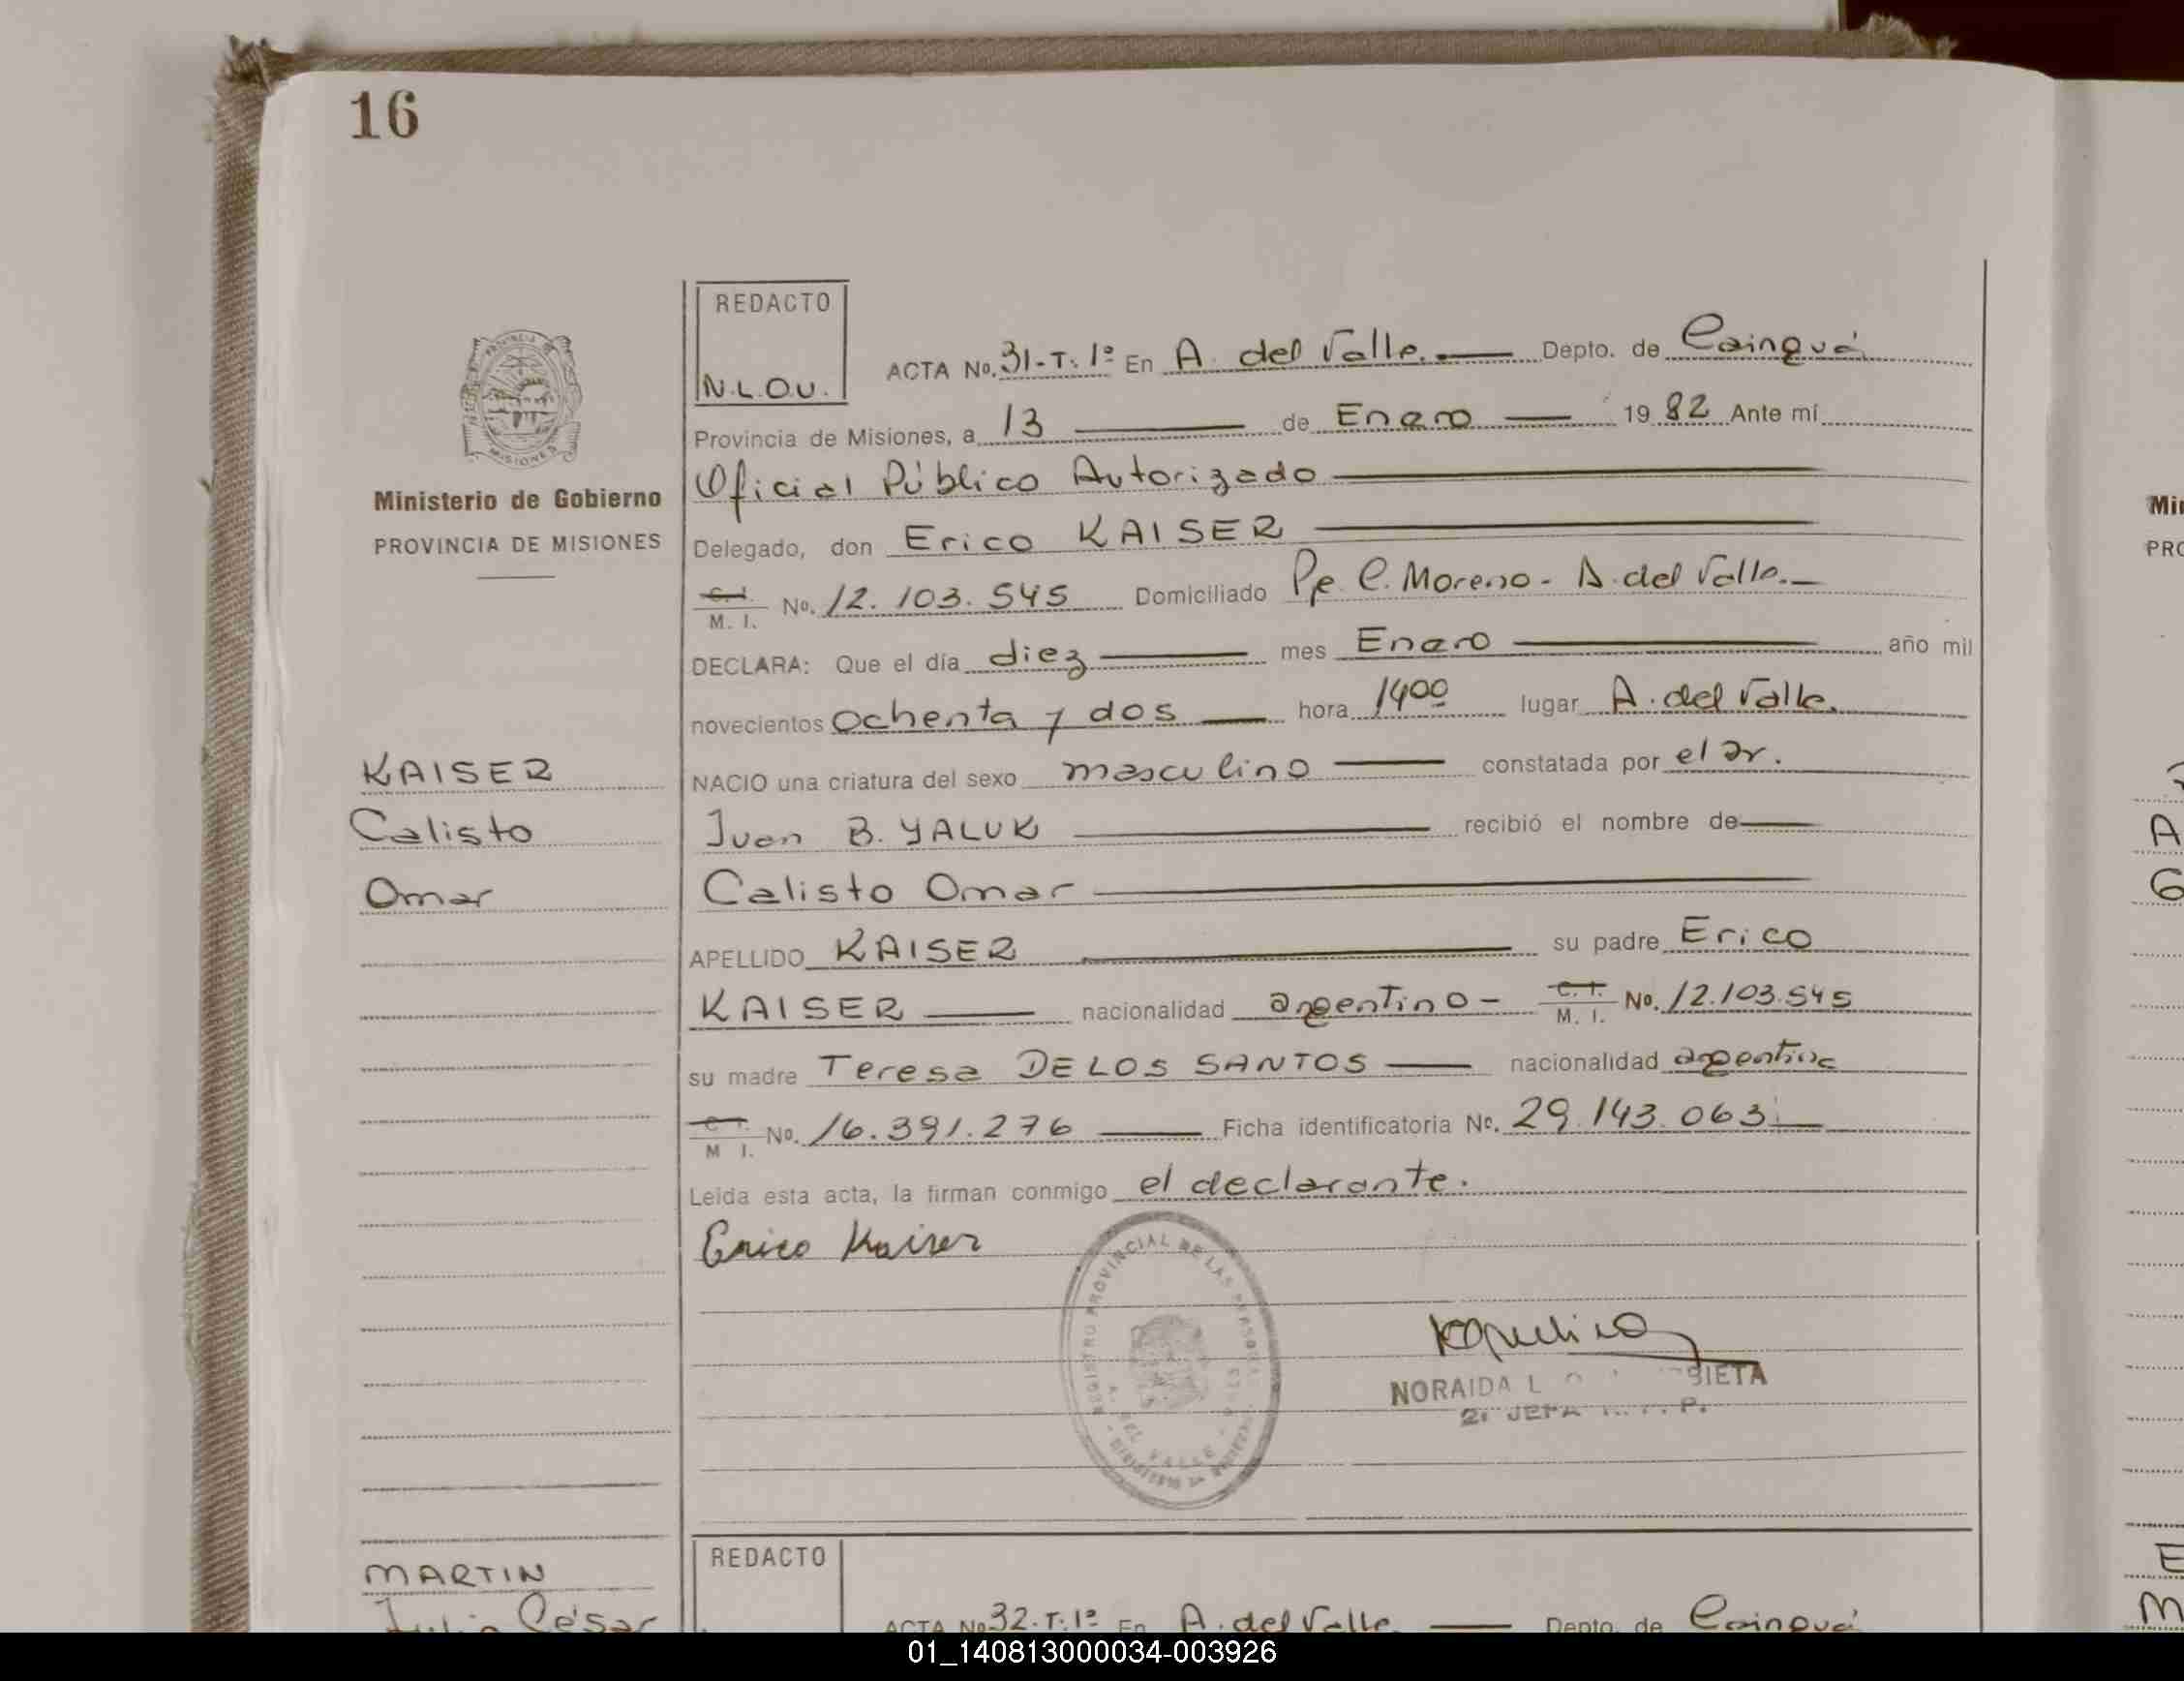 16
REDACTO
N.L.O.U.
ACTA No. 31-T: 1º En A. del Valle. Depto. de Cainguá
Provincia de Misiones, a 13 de Enero 1982 Ante mí
Oficial Público Autorizado
Delegado, don Erico KAISER
C. I. M. I. No. 12.103.545 Domiciliado Pje C. Moreno - A. del Valle.
DECLARA: Que el día diez mes Enero año mil
novecientos ochenta y dos hora 1400 lugar A. del Valle.
NACIO una criatura del sexo masculino constatada por el Dr.
Juan B. YALUK recibió el nombre de
Calisto Omar
APELLIDO KAISER su padre Erico
KAISER nacionalidad argentino - C. I. M. I. No. 12.103.545
su madre Teresa DE LOS SANTOS nacionalidad argentina
C. I. M I. No. 16.391.276 Ficha identificatoria No. 29.143.063
Leida esta acta, la firman conmigo el declarante.
Erico Kaiser
PROVINCIA DE
MISIONES
Ministerio de Gobierno
PROVINCIA DE MISIONES
KAISER
Calisto
Omar
REGISTRO PROVINCIAL DE LAS PERSONAS
A. DEL VALLE
NORAIDA L
2: JEFA
MARTIN
Julio César
REDACTO
ACTA No 32-T:1º En A. del Valle Depto. de Cainguá
Min
PRO
A
G
E
M
01_140813000034-003926